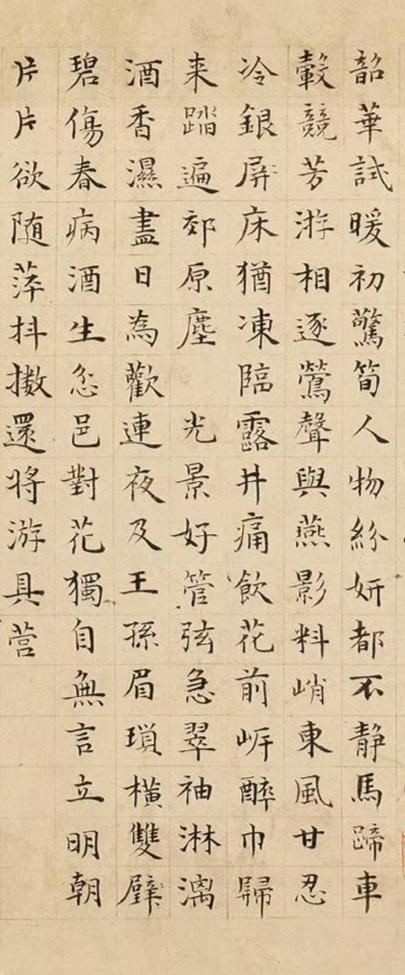 韶華試暖初驚筍人物紛妍都不靜馬蹄車
轂競芳游相逐鶯聲與燕影料峭東風甘忍
冷銀屏床猶凍臨露井痛飲花前岍醉巾歸
来踏遍郊原塵 光景好管弦急翠袖淋漓
酒香濕盡日為歡連夜及王孫眉瑣橫雙
碧傷春病酒生忩邑對花獨自無言立明朝
片片欲随萍抖擻還将游具营